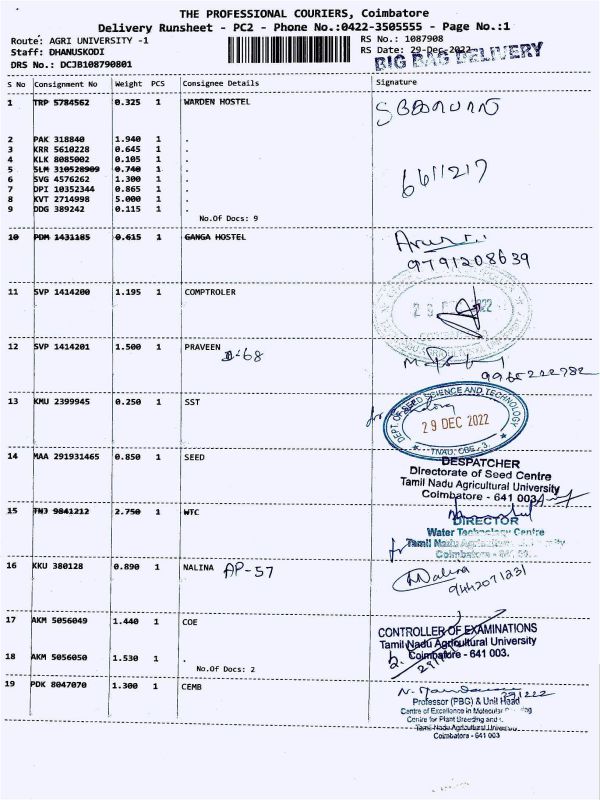 THE PROFESSIONAL COURIERS, Coimbatore
Delivery Runsheet - PC2 - Phone No.:0422-3505555 - Page No.:1
Route: AGRI UNIVERSITY -1
RS No.: 1087908
Staff: DHANUSKODI
RS Date: 29-Dec-2022
BIG BAG DELIVERY
DRS No.: DCJB108790801
S No Consignment No Weight PCS Consignee Details Signature
1 TRP 5784562 0.325 1 WARDEN HOSTEL
2 PAK 318840 1.940 1 .
3 KRR 5610228 0.645 1 .
4 KLK 8085002 0.105 1 .
5 SLM 310528909 0.740 1 .
6 SVG 4576262 1.300 1 .
7 DPI 10352344 0.865 1 .
8 KVT 2714998 5.000 1 .
9 DDG 389242 0.115 1 .
6611217
No.Of Docs: 9
10 PDM 1431185 0.615 1 GANGA HOSTEL
9791208639
11 SVP 1414200 1.195 1 COMPTROLER
12 SVP 1414201 1.500 1 PRAVEEN
13 KMU 2399945 0.250 1 SST
DEPT. OF SEED SCIENCE AND TECHNOLOGY
29 DEC 2022
TNAU, CBE - 3.
14 MAA 291931465 0.850 1 SEED
DESPATCHER
Directorate of Seed Centre
Tamil Nadu Agricultural University
Coimbatore - 641 003
15 TNJ 9841212 2.750 1 WTC
DIRECTOR
Water Technology Centre
Tamil Nadu Agricultural University
Coimbatore - 641 00
16 KKU 380128 0.890 1 NALINA AP-57
Nalina
9442071231
17 AKM 5056049 1.440 1 COE
CONTROLLER OF EXAMINATIONS
Tamil Nadu Agricultural University
Coimbatore - 641 003.
18 AKM 5056050 1.530 1 .
No.Of Docs: 2
19 PDK 8047070 1.300 1 CEMB
291222
Professor (PBG) & Unit Head
Centre of Excellence in Molecular
Centre for Plant Breeding and
Tamil Nadu Agricultural University
Coimbatore - 641 003